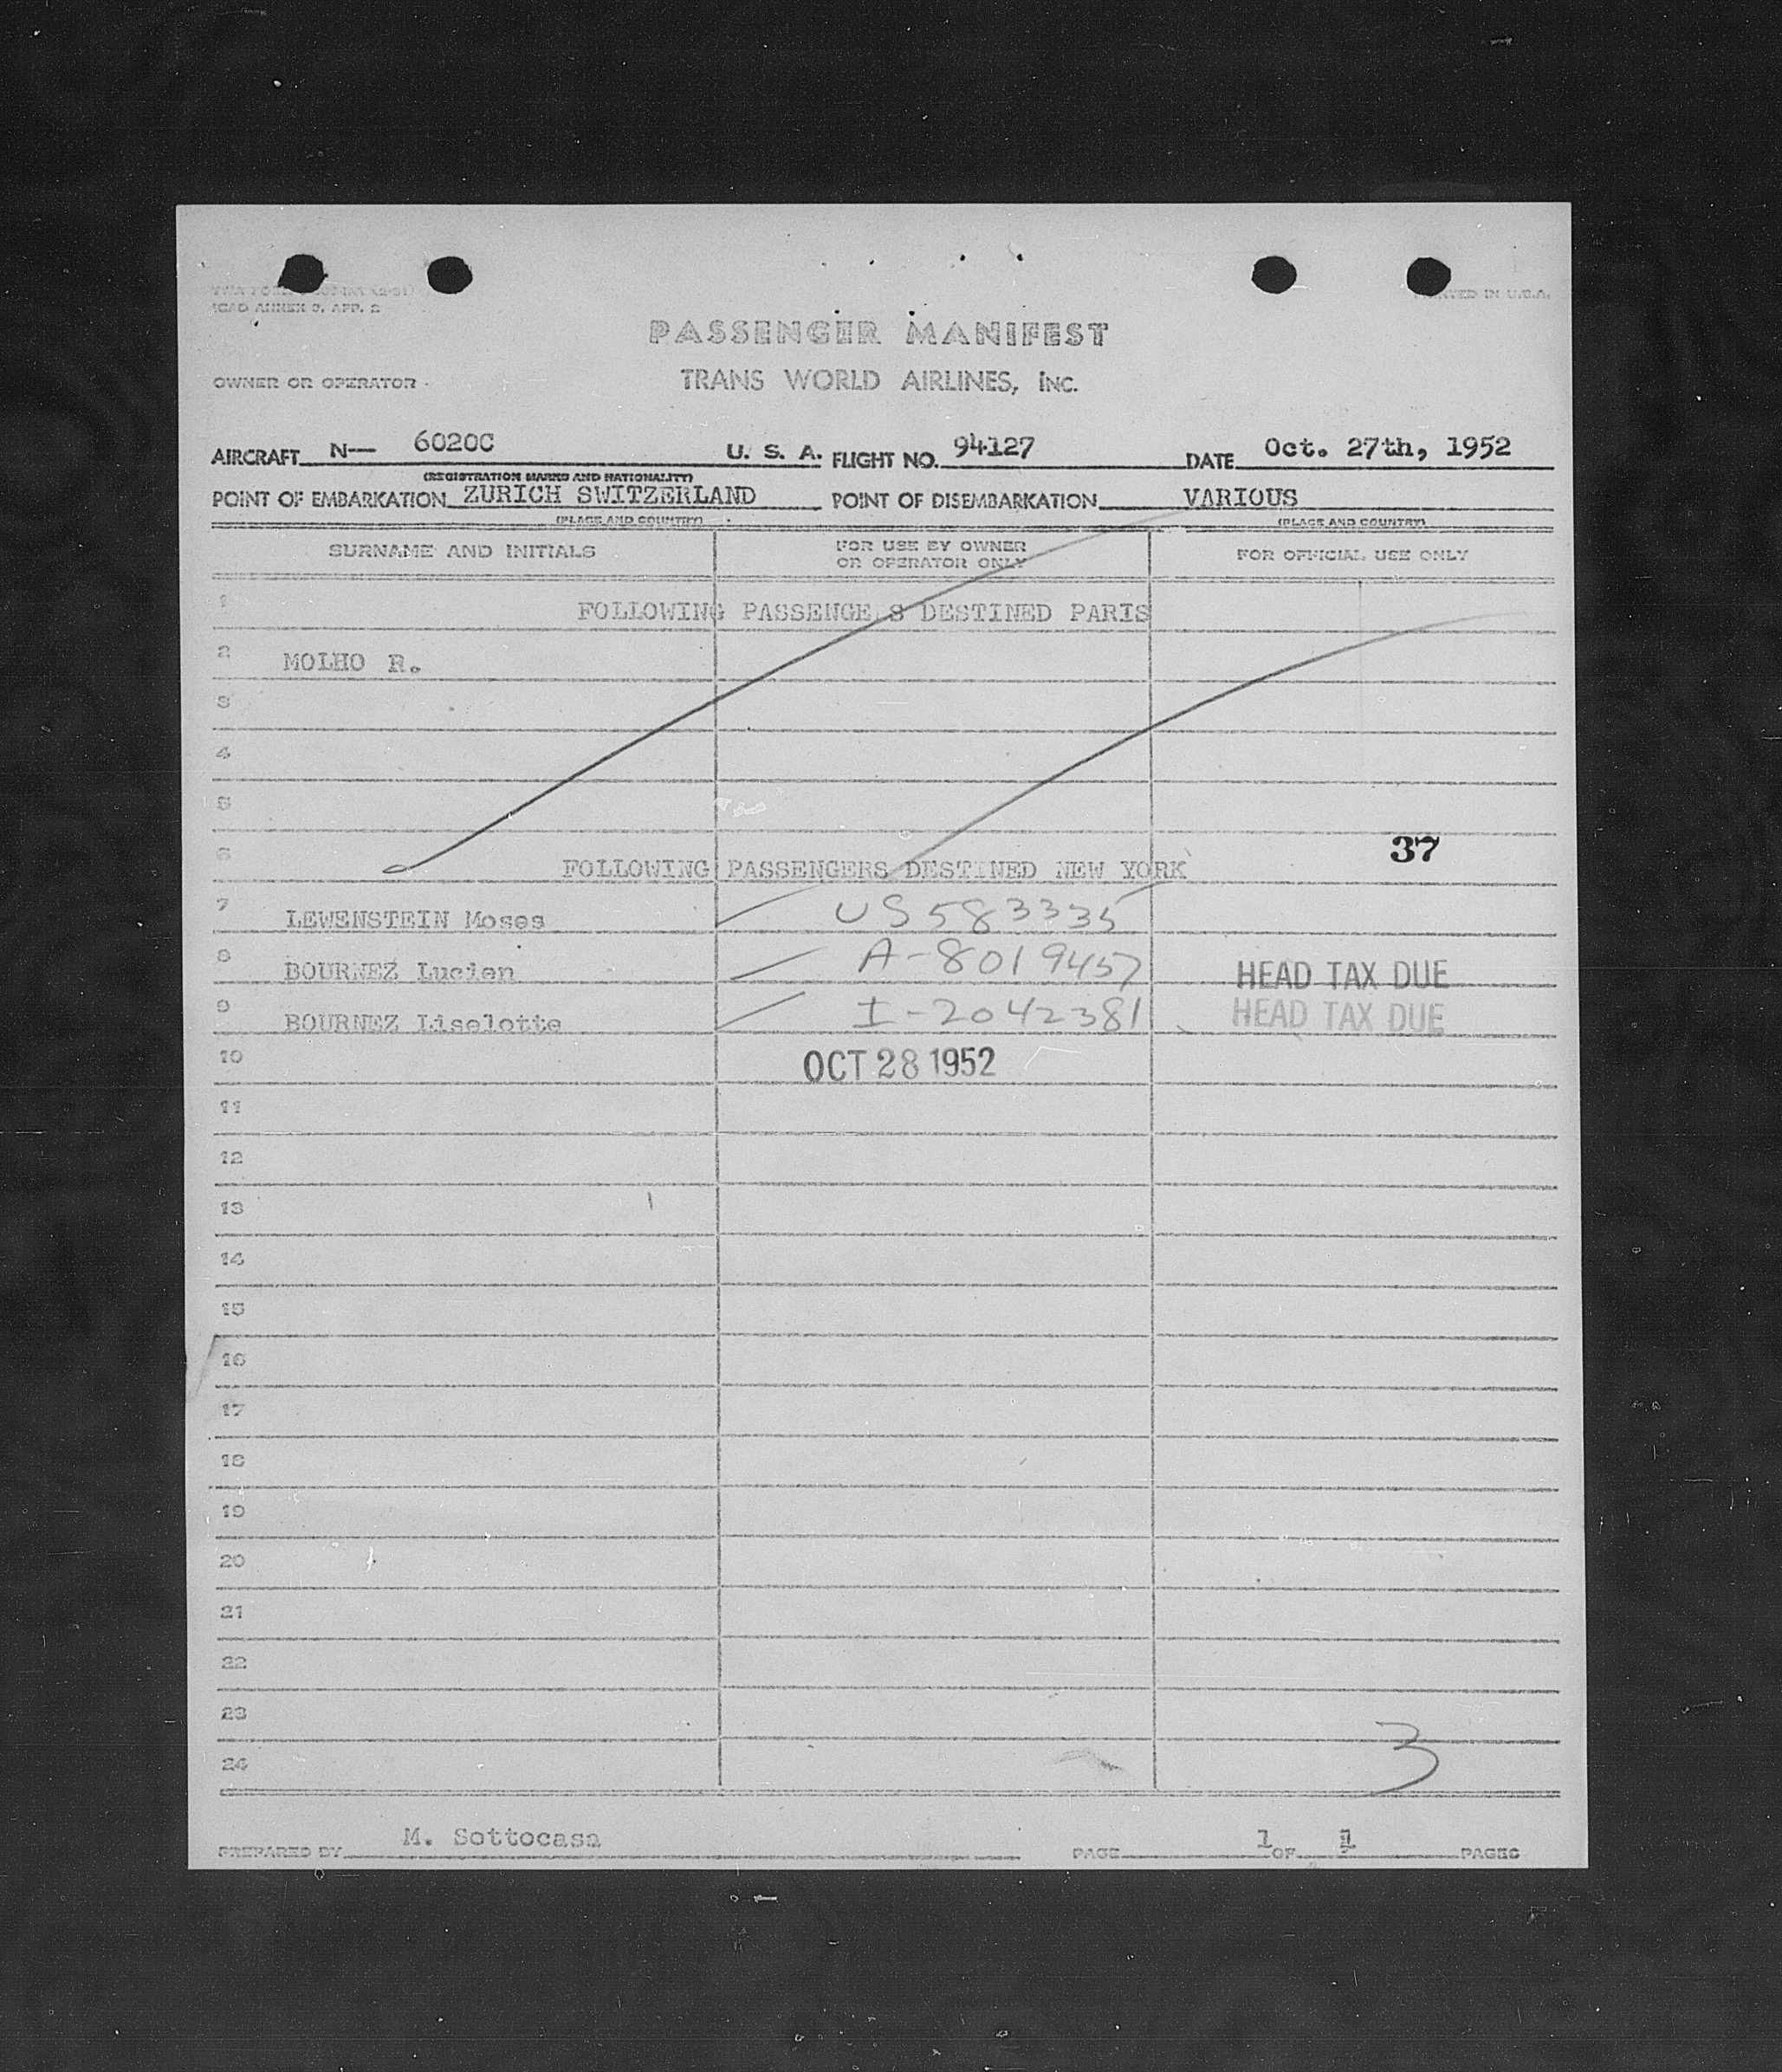 ICAO ANNEX 9, APP. 2
PRINTED IN U.S.A.
PASSENGER MANIFEST
OWNER OR OPERATOR
TRANS WORLD AIRLINES, INC.
AIRCRAFT N— 6020C U. S. A. FLIGHT NO. 94127 DATE Oct. 27th, 1952
(REGISTRATION MARKS AND NATIONALITY)
POINT OF EMBARKATION ZURICH SWITZERLAND POINT OF DISEMBARKATION VARIOUS
(PLACE AND COUNTRY) (PLACE AND COUNTRY)
SURNAME AND INITIALS FOR USE BY OWNER OR OPERATOR ONLY FOR OFFICIAL USE ONLY
1 FOLLOWING PASSENGE S DESTINED PARIS
2 MOLHO R.
3
4
5
37
6 FOLLOWING PASSENGERS DESTINED NEW YORK
7 LEWENSTEIN Moses US 583335
8 BOURNEZ Lucien A-8019457 HEAD TAX DUE
9 BOURNEZ Liselotte I-2042381 HEAD TAX DUE
10 OCT 28 1952
11
12
13
14
15
16
17
18
19
20
21
22
23
24
3
PREPARED BY M. Sottocasa PAGE 1 OF 1 PAGES